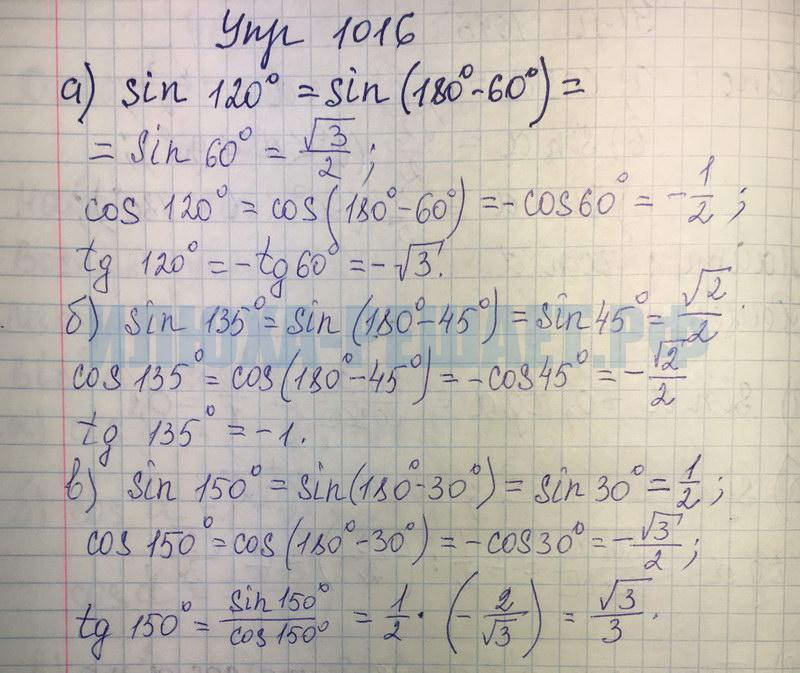 Упр 1016
а) sin 120° = sin (180° - 60°) =
= sin 60° = √3/2 ;
cos 120° = cos (180° - 60°) = - cos 60° = - 1/2 ;
tg 120° = - tg 60° = - √3.
б) sin 135° = sin (180° - 45°) = sin 45° = √2/2.
ИЛЮХА-РЕШАЕТ.РФ
cos 135° = cos (180° - 45°) = - cos 45° = - √2/2
tg 135° = - 1.
в) sin 150° = sin (180° - 30°) = sin 30° = 1/2 ;
cos 150° = cos (180° - 30°) = - cos 30° = - √3/2 ;
tg 150° = sin 150°/cos 150° = 1/2 · (- 2/√3) = √3/3.